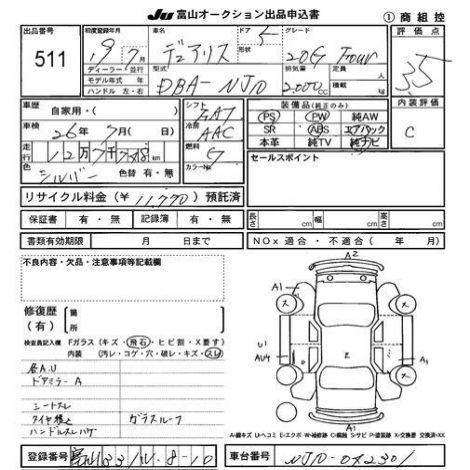 JU 富山オークション出品申込書
① 商 組 控
出品番号
511
初度登録年月
19年7月
車名
デュアリス
ドア
5
形状
グレード
20G Four
評価点
3.5
ディーラー・並行
モデル年式 年
ハンドル 左・右
型式
DBA-NJ10
排気量
2,000cc
定員
人
積載量
kg
車歴
自家用・( )
車検
26年7月(日)
走行
12万7千718km
色
シルバー
色替 有・無
シフト
FAT
冷房
AAC
燃料
G
カラーNo.
装備品(純正のみ)
PS PW 純AW
SR ABS エアバック
本革 純TV 純ナビ
内装評価
C
セールスポイント
リサイクル料金(¥ 11,770)預託済
保証書 有・無 記録簿 有・無
長さ cm 幅 cm 高さ cm
書類有効期限 月 日まで
NOx 適合・不適合( 年 月)
不良内容・欠品・注意事項等記載欄
修復歴
(有)
箇所
検査員記入欄 Fガラス(キズ・飛石・ヒビ割・X要す)
内装 (汚レ・コゲ・穴・破レ・キズ・スレ)
各A.U
ドアミラーA
シートスレ
タイヤ積込 ガラスルーフ
ハンドルスレハゲ
A2
A1
U1
AU4
A1
A1
A=線キズ U=ヘコミ E=エクボ W=補修跡 C=腐蝕 S=サビ P=塗装跡 X=交換要 交換済-XX
登録番号
車台番号
NJ10-072301